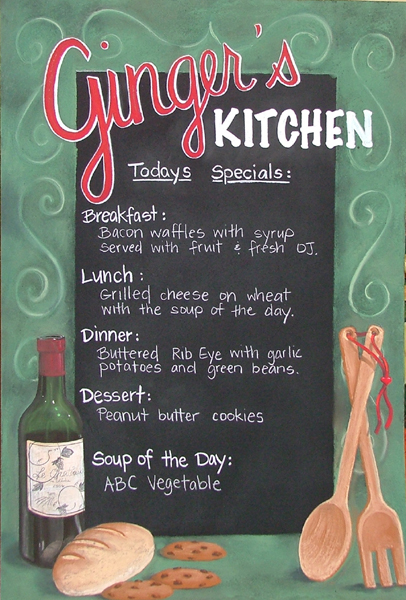 Ginger's
KITCHEN
Todays Specials:
Breakfast:
Bacon waffles with syrup
served with fruit & fresh OJ.
Lunch:
Grilled cheese on wheat
with the soup of the day.
Dinner:
Buttered Rib Eye with garlic
potatoes and green beans.
Dessert:
Peanut butter cookies
Soup of the Day:
ABC Vegetable